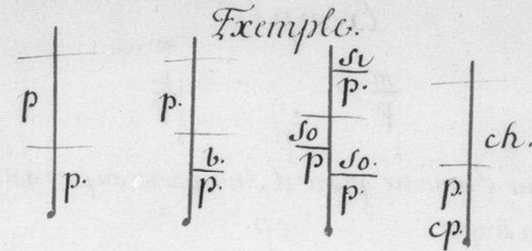 Exemple.
p
p.
p.
b.
p.
sı
p.
so
p
so.
p.
ch.
p.
cp.